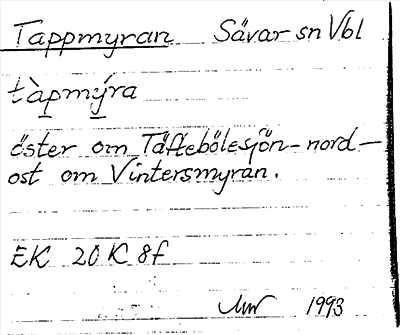 Tappmyran Sävar sn Vbl
tàpmýra
öster om Täftebölesjön - nord-
ost om Vintersmyran.
EK 20 K 8f
1993